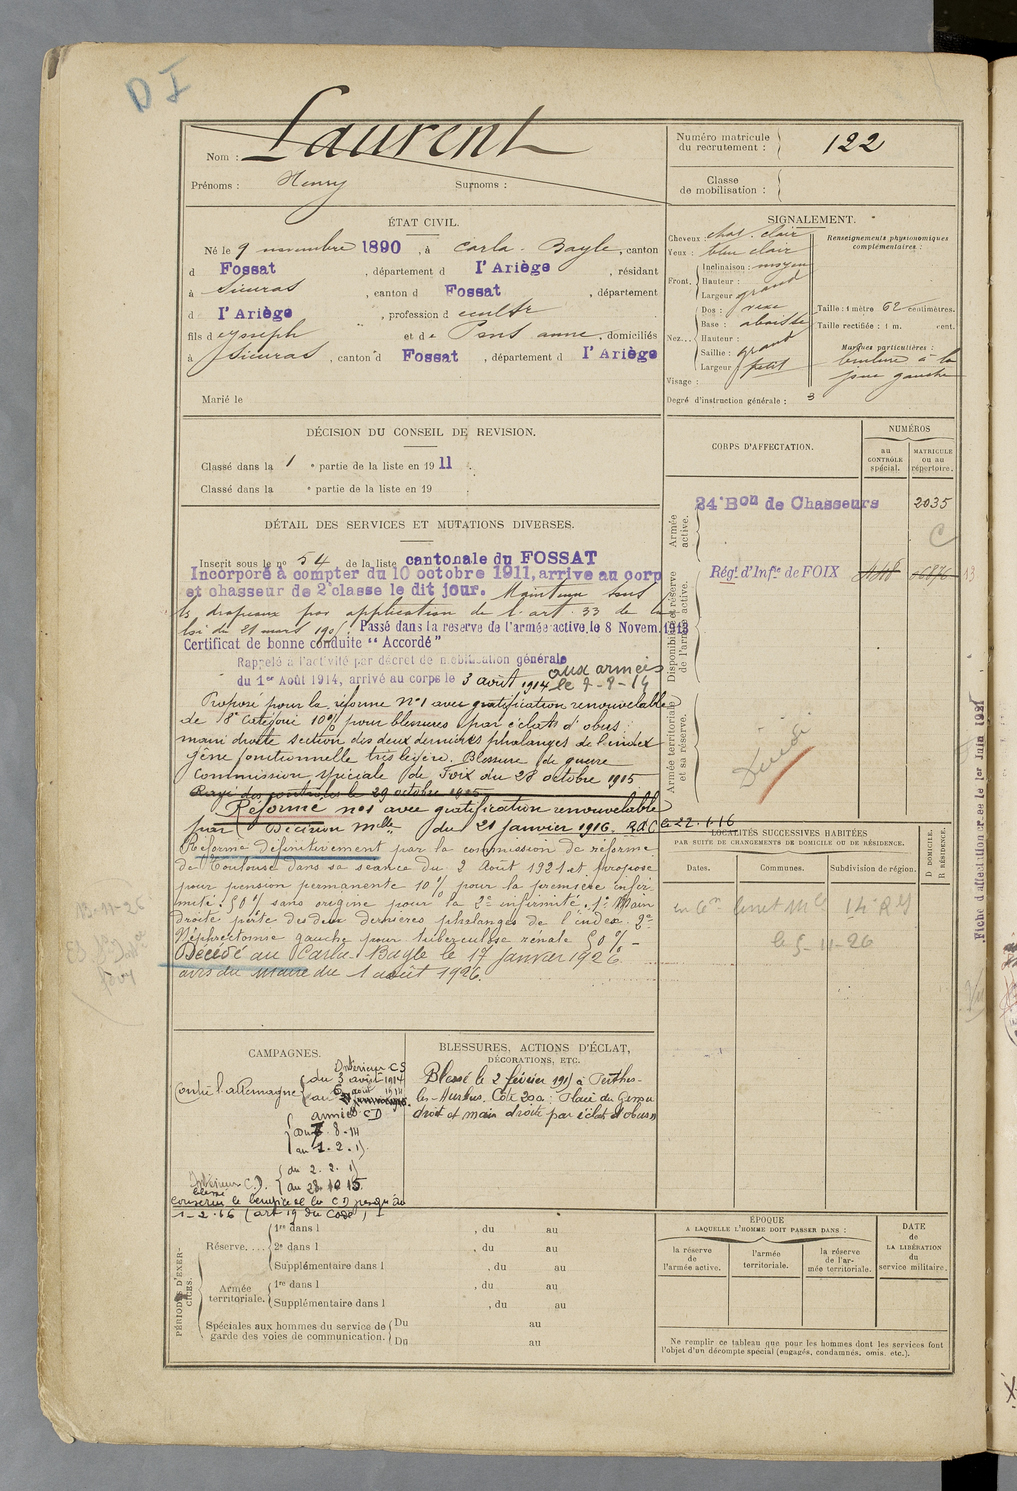 D I
Nom : Laurent
Prénoms : Henry Surnoms :
Numéro matricule du recrutement : 122
Classe de mobilisation :
ÉTAT CIVIL.
Né le 9 novembre 1890, à Carla-Bayle, canton
d Fossat, département d l'Ariège, résidant
à Sieuras, canton d Fossat, département
d l'Ariège, profession d cultr
fils d Joseph et de Pons anne, domiciliés
à Sieuras, canton d Fossat, département d l'Ariège
Marié le
SIGNALEMENT.
Cheveux : chat. clair
Yeux : bleu clair
Front. Inclinaison : moyen
Hauteur :
Largeur grand
Nez... Dos : vexe
Base : abaissée
Hauteur :
Saillie : grand
Largeur petit
Visage :
Degré d'instruction générale : 3
Renseignements physionomiques complémentaires :
Taille : 1 mètre 62 centimètres.
Taille rectifiée : 1 m. cent.
Marques particulières :
à la
joue gauche
DÉCISION DU CONSEIL DE REVISION.
Classé dans la 1 e partie de la liste en 1911.
Classé dans la e partie de la liste en 19
CORPS D'AFFECTATION.
NUMÉROS
au CONTRÔLE spécial.
MATRICULE ou au répertoire.
Armée active.
24e Bon de Chasseurs 2035
C
Disponibilité et réserve de l'armée active.
Régt d'Infie de FOIX
13
Armée territoriale et sa réserve.
DÉTAIL DES SERVICES ET MUTATIONS DIVERSES.
Inscrit sous le no 54 de la liste cantonale du FOSSAT
Incorporé à compter du 10 octobre 1911, arrivé au corp
et chasseur de 2e classe le dit jour. Maintenu sous
les drapeaux par application de l'art. 33 de la
loi du 21 mars 1905. Passé dans la réserve de l'armée active, le 8 Novem. 1913
Certificat de bonne conduite "Accordé"
Rappelé à l'activité par décret de mobilisation générale
du 1er Août 1914, arrivé au corps le 3 août 1914 aux armées
le 7-8-14
Proposé pour la réforme no 1 avec gratification renouvelable
de 8e catégorie 10% pour blessures par éclats d'obus :
main droite section des deux dernières phalanges de l'index
gêne fonctionnelle très légère. Blessure de guerre
Commission spéciale de Foix du 28 octobre 1915
Rayé des contrôles le 29 octobre 1915
Réformé no 1 avec gratification renouvelable
par Décision Mlle du 21 janvier 1916. R.d.C le 22.1.16
Réformé définitivement par la commission de réforme
de Toulouse dans sa séance du 2 Août 1921 et proposé
pour pension permanente 10% pour la première infir-
mité : 50% sans origine pour la 2e infirmité. 1o Main
droite perte des deux dernières phalanges de l'index. 2o
Néphrectomie gauche pour tuberculose rénale 50% -
Décédé au Carla-Bayle le 17 janvier 1926.
avis du maire du 1 août 1926.
LOCALITÉS SUCCESSIVES HABITÉES
PAR SUITE DE CHANGEMENTS DE DOMICILE OU DE RÉSIDENCE.
Dates. Communes. Subdivision de région. D DOMICILE. R RÉSIDENCE.
le 5-11-26
13-11-26
CAMPAGNES.
Contre l'allemagne
Intérieur CS
du 3 août 1914
au 6 août 1914
armées CD
du 7.8.14
au 1.2.15
Intérieur C.D. blessé
du 2.2.15
au 28.10.15
conserve le bénéfice de la CD jusqu'au
1-2-16 (art 19 du Code)
BLESSURES, ACTIONS D'ÉCLAT,
DÉCORATIONS, ETC.
Blessé le 2 février 1915 à Perthes-
les-Hurlus. Cote 200 : Plaie du Genou
droit et main droite par éclats d'obus
PÉRIODES D'EXER-CICES.
Réserve....
1re dans l , du au
2e dans l , du au
Supplémentaire dans l , du au
Armée territoriale.
1re dans l , du au
Supplémentaire dans l , du au
Spéciales aux hommes du service de garde des voies de communication.
Du au
Du au
ÉPOQUE
A LAQUELLE L'HOMME DOIT PASSER DANS :
la réserve de l'armée active.
l'armée territoriale.
la réserve de l'armée territoriale.
DATE de LA LIBÉRATION du service militaire.
Ne remplir ce tableau que pour les hommes dont les services font
l'objet d'un décompte spécial (engagés, condamnés, omis, etc.).
Fiche d'affectation créée le 1er Juin 1921